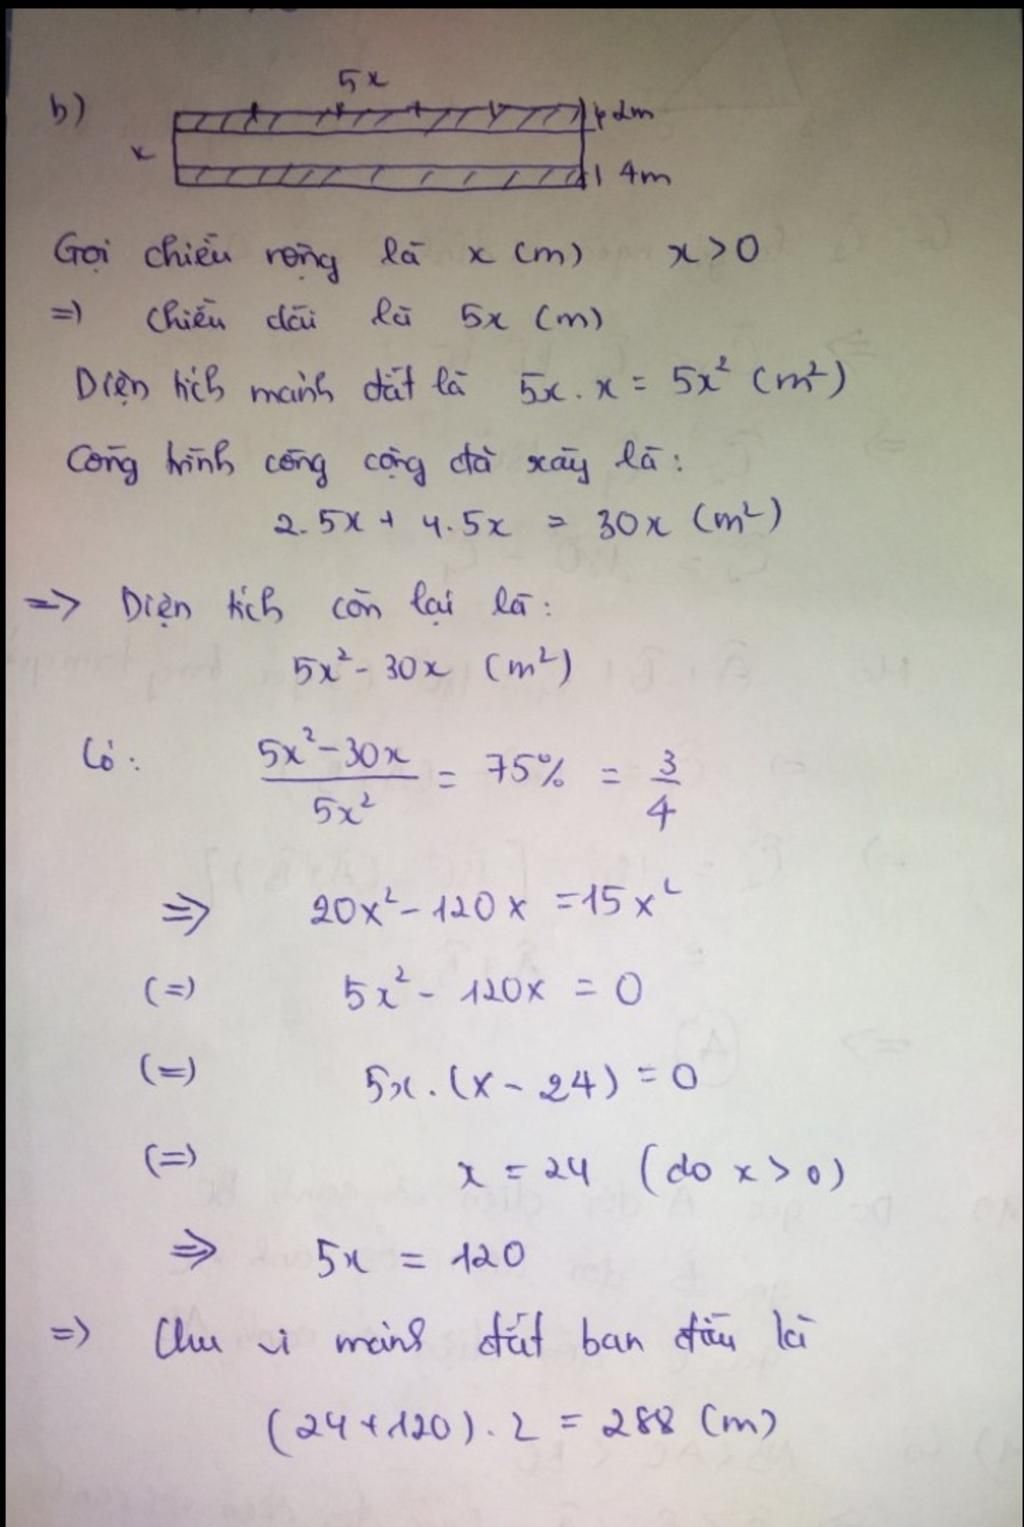 b)
5x
x
2m
4m
Gọi chiều rộng là x (m) x > 0
=) chiều dài là 5x (m)
Diện tích mảnh đất là 5x . x = 5x² (m²)
Công trình công cộng đã xây là :
2.5x + 4.5x = 30x (m²)
=> Diện tích còn lại là :
5x² - 30x (m²)
Có : \frac{5x² - 30x}{5x²} = 75% = \frac{3}{4}
=> 20x² - 120x = 15x²
(=) 5x² - 120x = 0
(=) 5x . (x - 24) = 0
(=) x = 24 (do x > 0)
=> 5x = 120
=> Chu vi mảnh đất ban đầu là
(24 + 120) . 2 = 288 (m)